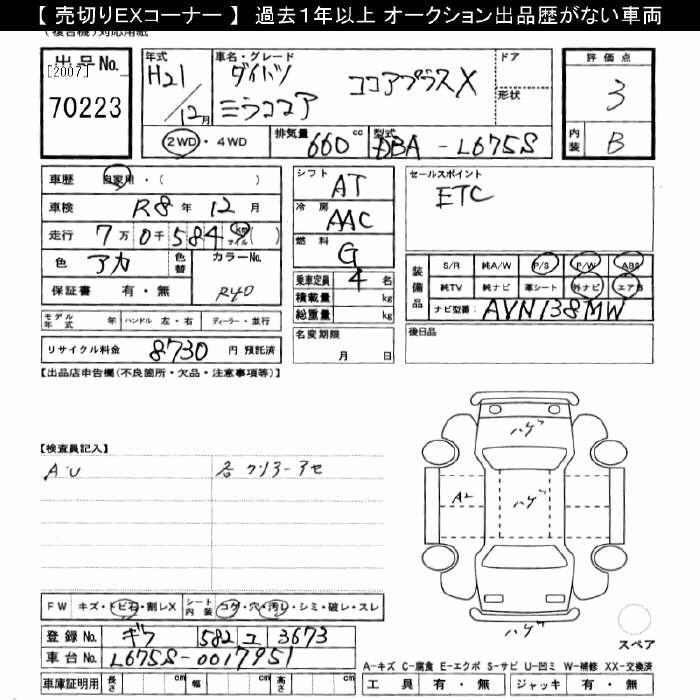 【 売切りEXコーナー 】 過去1年以上 オークション出品歴がない車両
(複合機)対応用紙
出品No. [2007] 70223
年式 H21/12月
車名・グレード ダイハツ ミラココア ココアプラスX
ドア
形状
評価点 3
内装 B
2WD・4WD 排気量 660 cc 型式 DBA-L675S
車歴 自家用・( )
車検 R8年 12月
走行 7万 0千 584 km マイル ( )
色 アカ 色替 カラーNo. R40
保証書 有・無
モデル年式 年 ハンドル 左・右 ディーラー・並行
リサイクル料金 8730 円 預託済
シフト AT
冷房 AAC
燃料 G
乗車定員 4 名
積載量 kg
総重量 kg
名変期限 月 日
セールスポイント
ETC
装備品 S/R 純A/W P/S P/W ABS
純TV 純ナビ 革シート 外ナビ エアB
ナビ型番 AVN138MW
後日品
【出品店申告欄(不良箇所・欠品・注意事項等)】
【検査員記入】
A・U
各 クリアーアセ
ハゲ
A2
ハゲ
ハゲ
FW キズ・トビ石・割レX シート内装 コゲ・穴・汚レ・シミ・破レ・スレ
登録No. ギフ 582 ユ 3673
車台No. L675S-0017951
車庫証明用 長さ 幅 高さ
スペア
A-キズ C-腐食 E-エクボ S-サビ U-凹ミ W-補修 XX-交換済
工具 有・無 ジャッキ 有・無